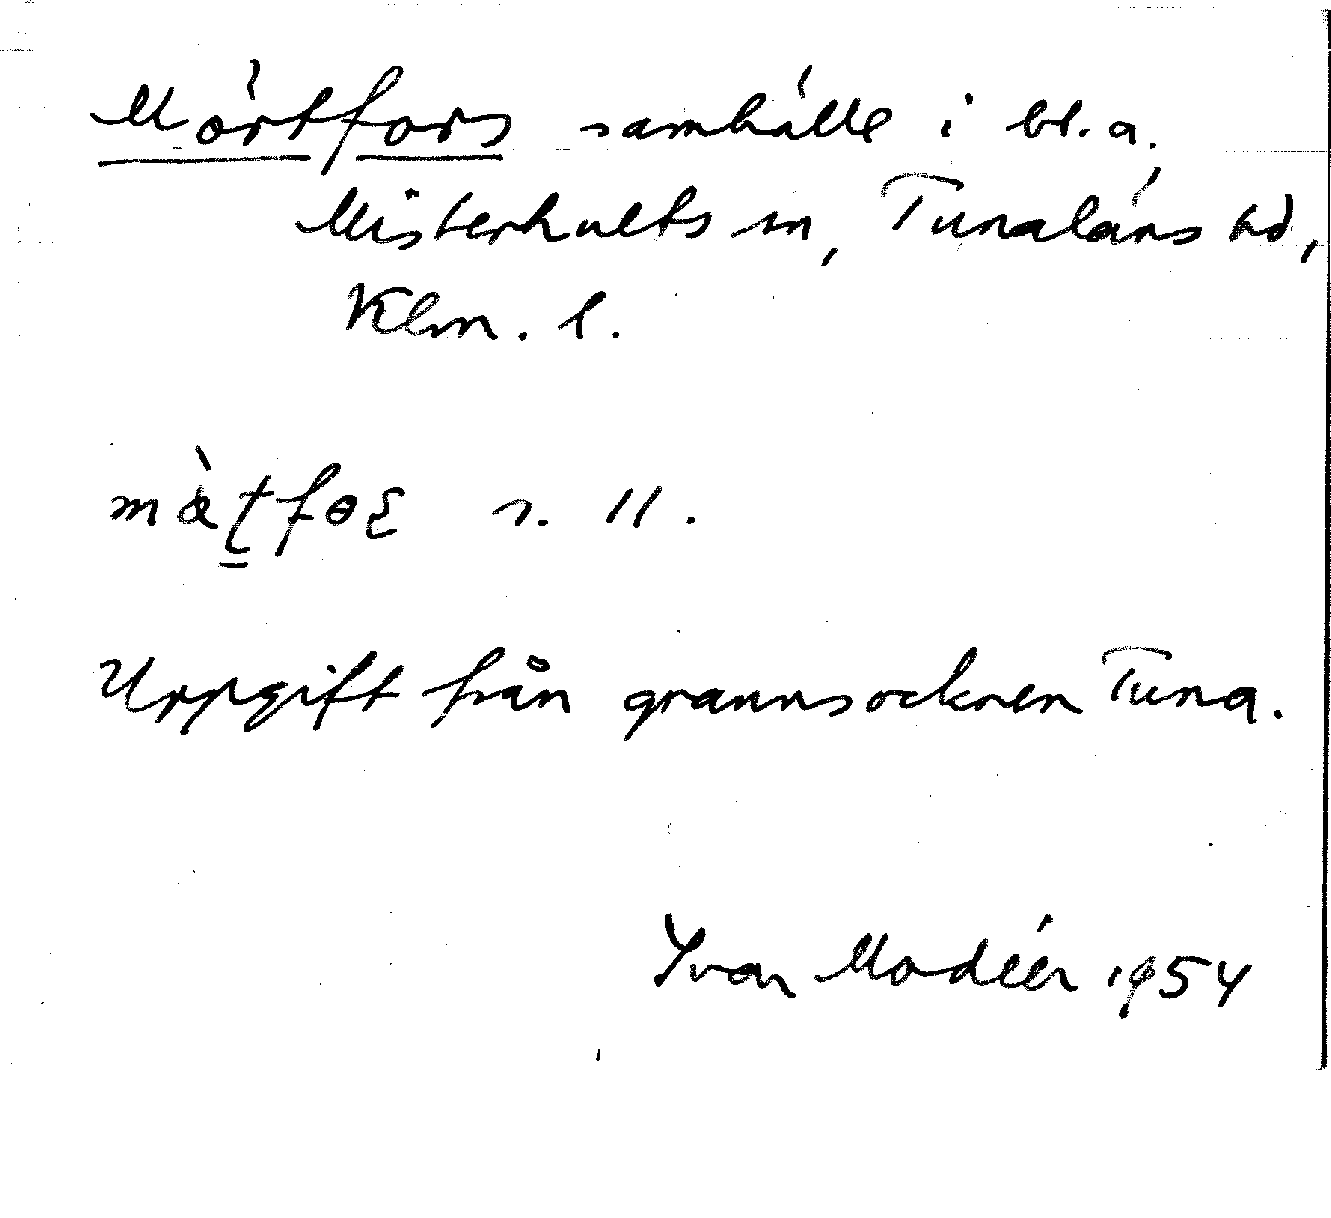 Mörtfors samhälle i bl.a.
Misterhults sn, Tunaläns hd,
Klm. l.
mæ̀ʈfɵꞩ s. ll.
Uppgift från grannsocknen Tuna.
Ivar Modéer 1954